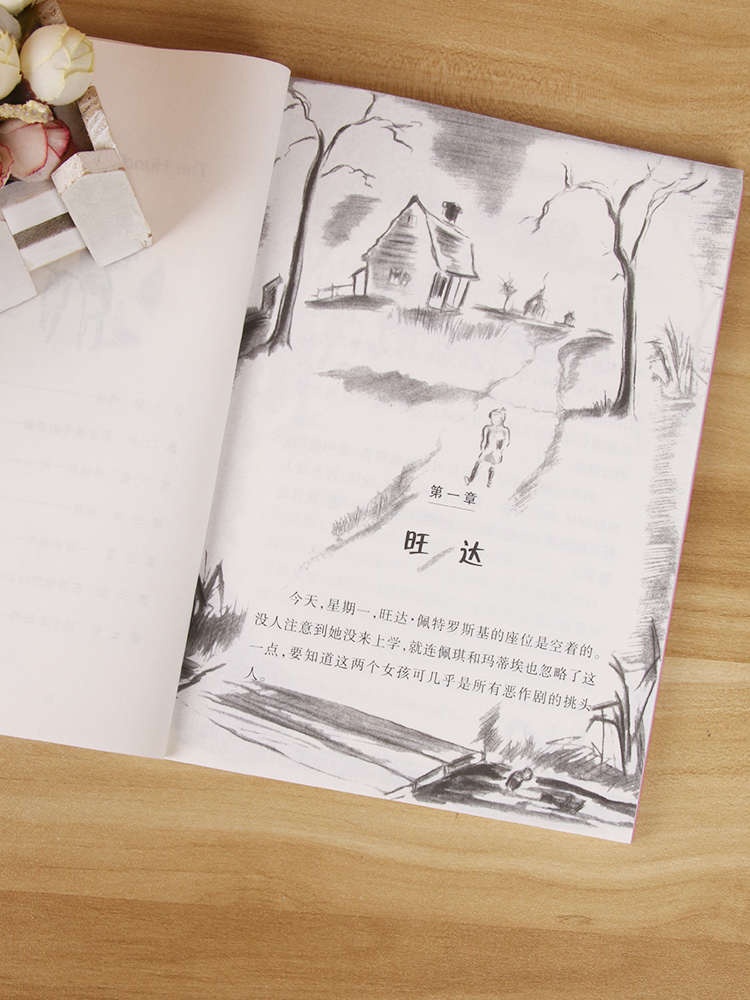 The Hund
第一章
旺 达
今天，星期一，旺达·佩特罗斯基的座位是空着的。
没人注意到她没来上学，就连佩琪和玛蒂埃也忽略了这
一点，要知道这两个女孩可几乎是所有恶作剧的挑头
人。